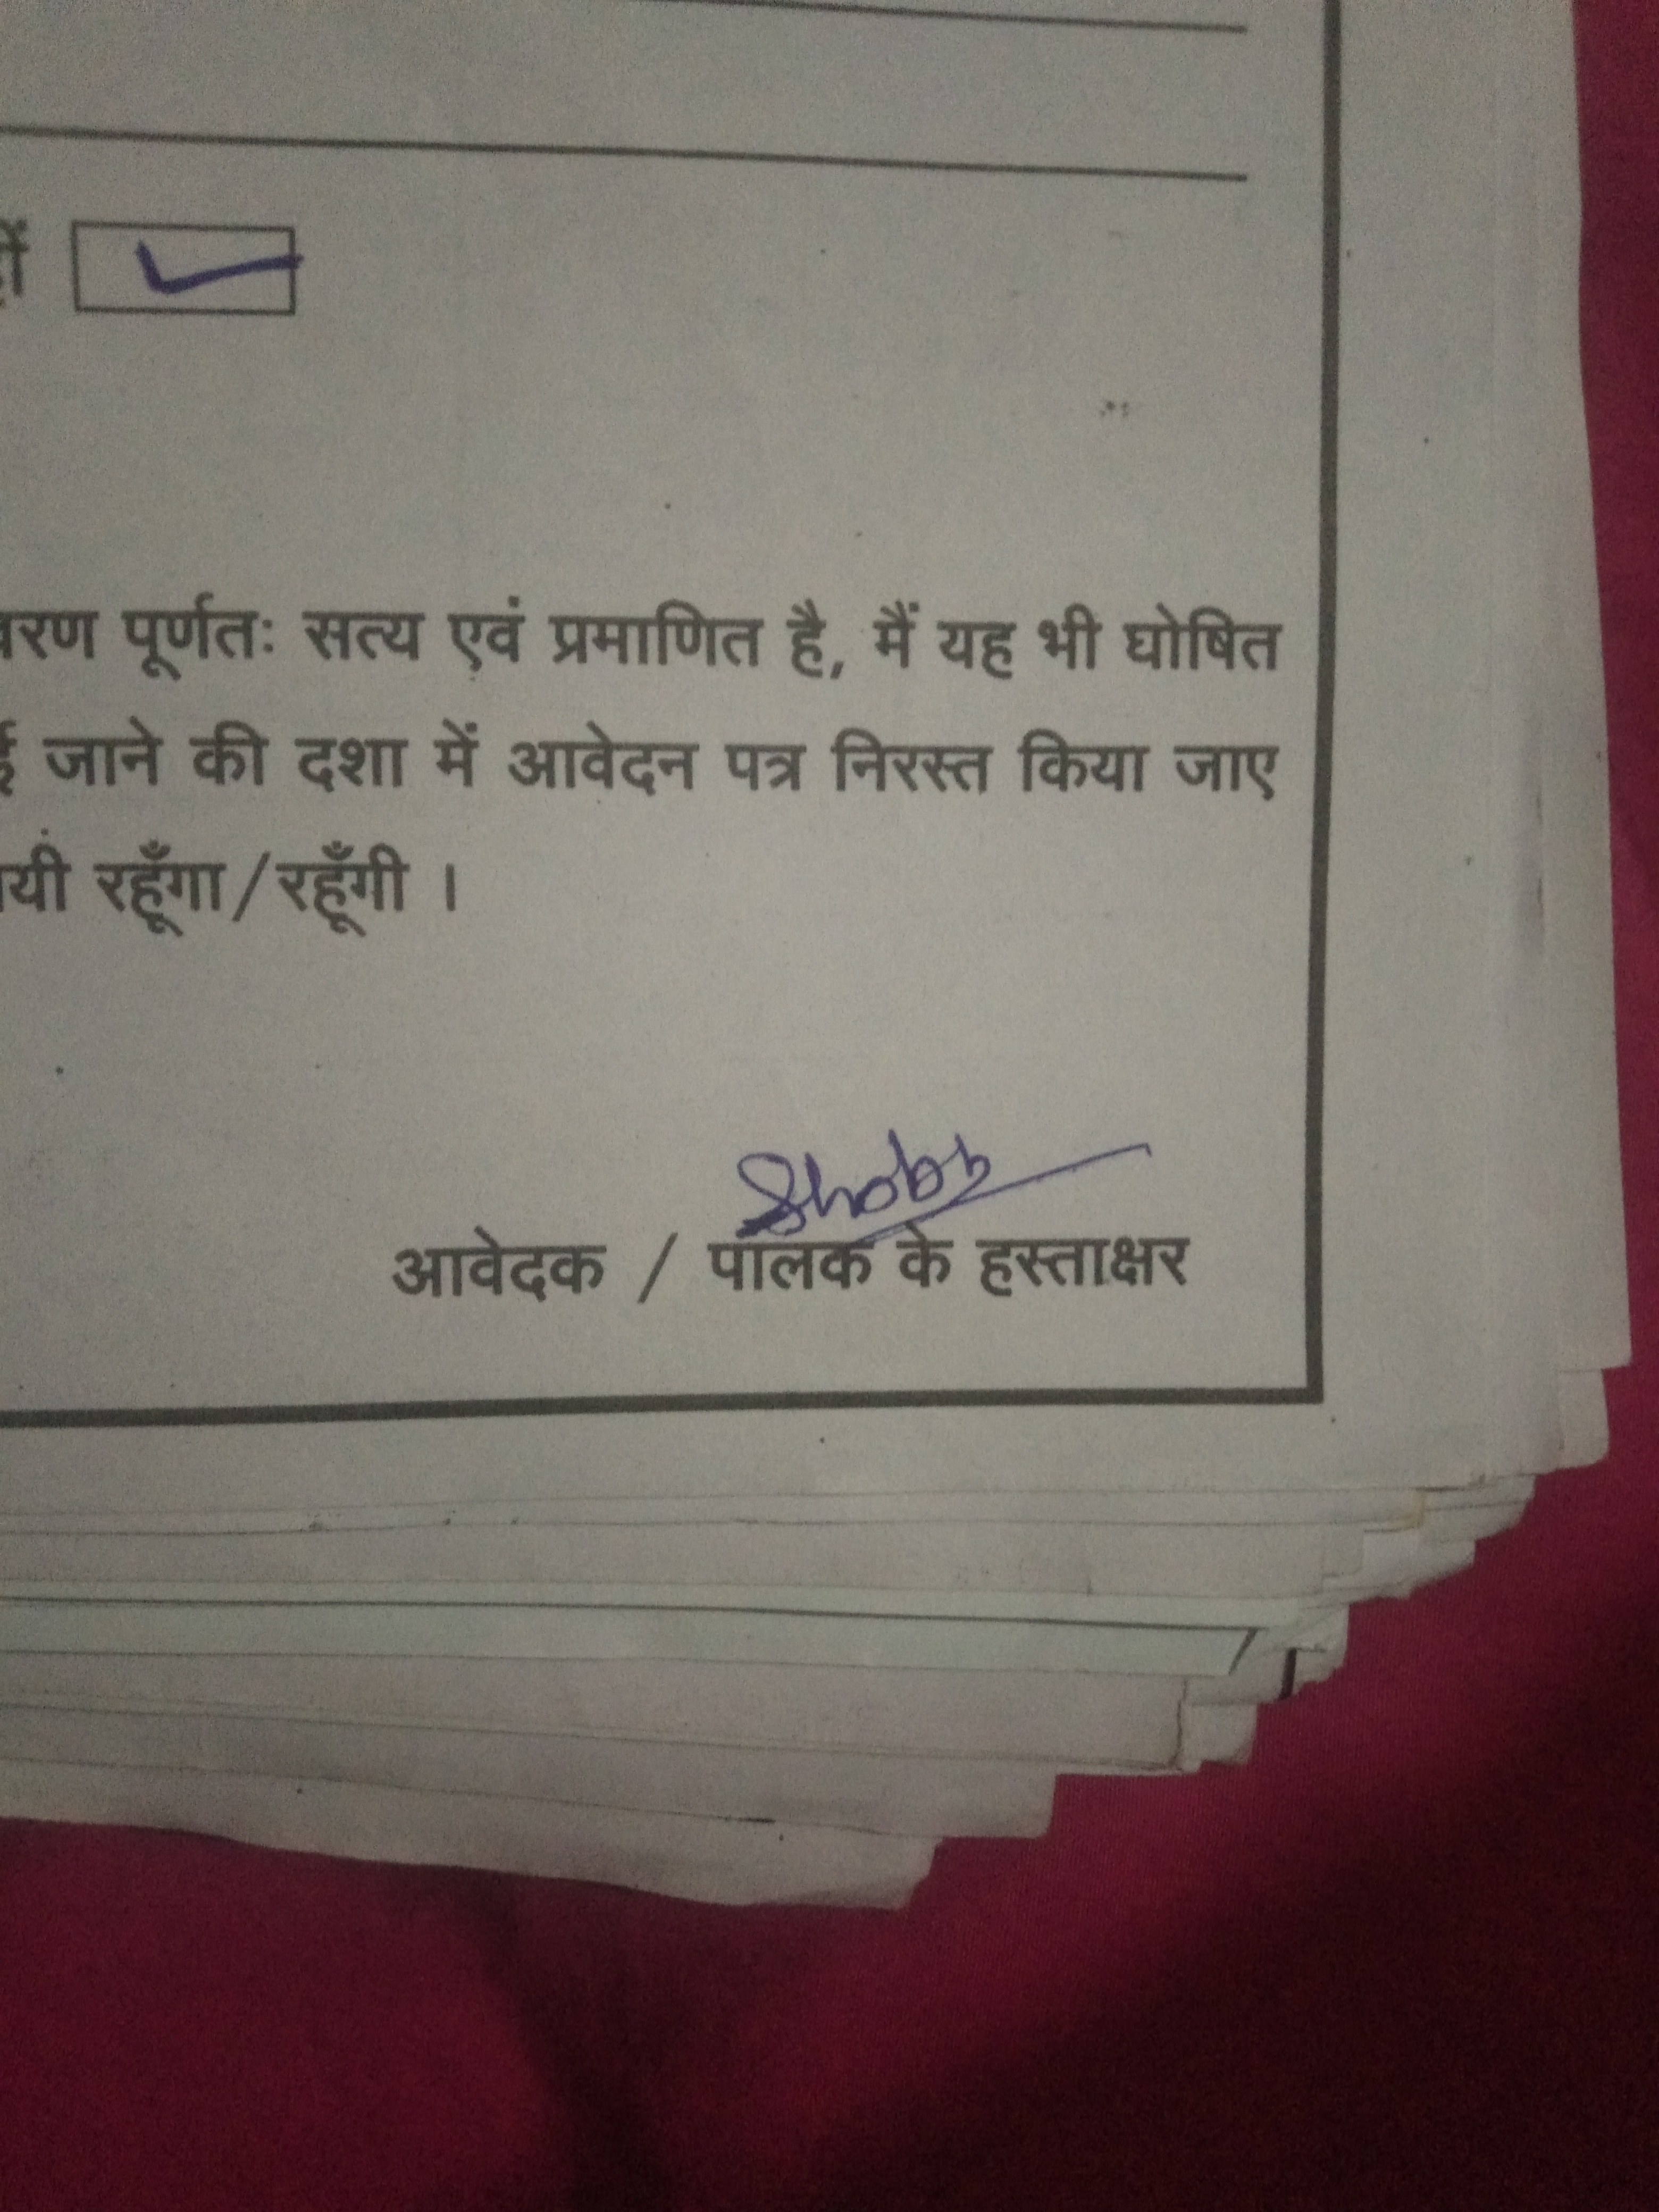 वरण पूर्णतः सत्य एवं प्रमाणित है, मैं यह भी घोषित
जाने की दशा में आवेदन पत्र निरस्त किया जाए
रहूँगा/रहूँगी ।
आवेदक / पालक के हस्ताक्षर